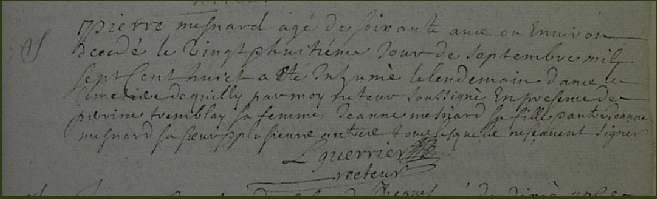 pierre mesnard agé de soixante ans ou Environ
decedé le vingt huitiéme Jour de septembre mil
sept Cent huict a été Inhumé le lendemain dans le
cimetiére de quilly par moy recteur soussigné En presence de
perrine tremblay sa femme Jeanne mesnard sa fille Jeanne
mesnard sa soeur plusieurs autres lesquels ne scavent signer
Lguerrier
recteur